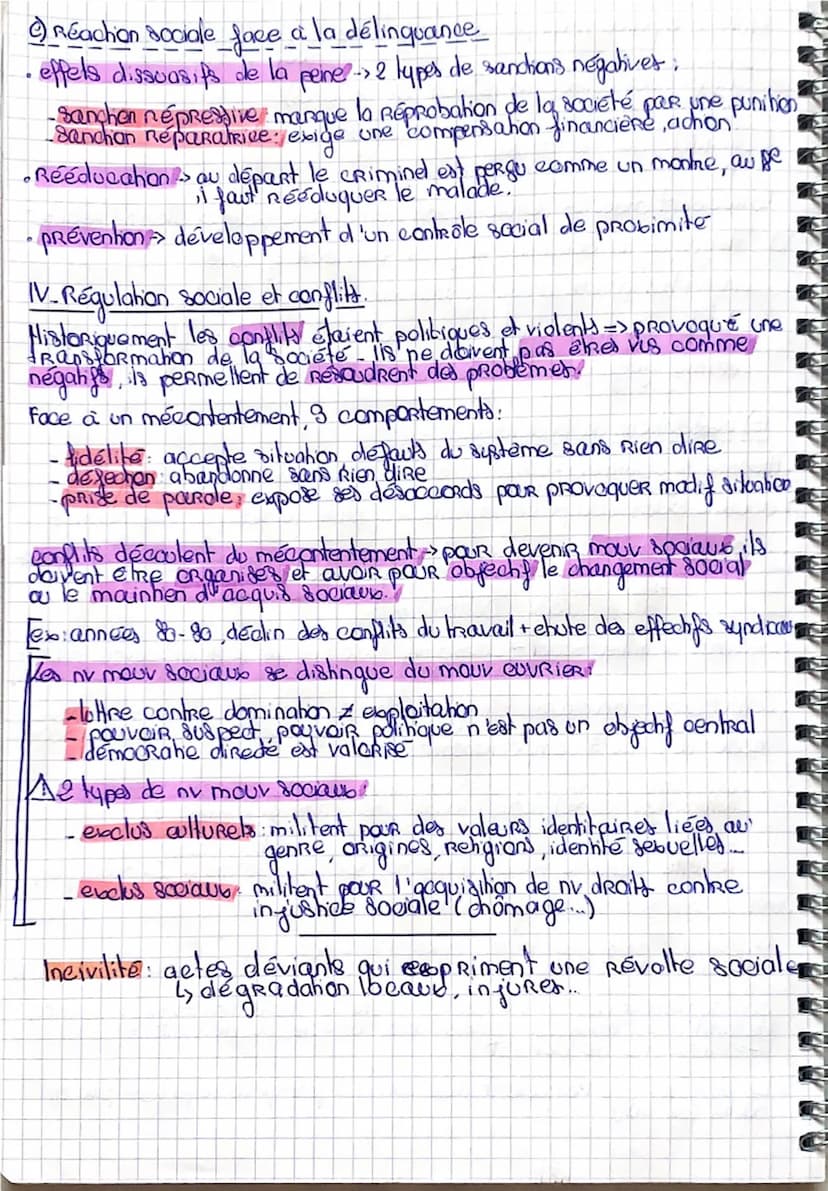 c) Réaction sociale face à la délinquance
• effets dissuasifs de la peine -> 2 types de sanctions négatives :
- sanction répressive marque la réprobation de la société par une punition
- sanction réparatrice : exige une compensation financière, action
• Rééducation -> au départ le criminel est perçu comme un montre, au
il faut rééduquer le malade.
• prévention -> développement d'un contrôle social de proximité
IV - Régulation sociale et conflits.
Historiquement les conflits étaient politiques et violents => provoqué une
transformation de la société - Ils ne doivent pas êtres vus comme
négatifs, ils permettent de résoudrent des problèmes.
Face à un mécontentement, 3 comportements :
- fidélité : accepte situation défauts du système sans rien dire
- défection : abandonne sans rien dire
- prise de parole : expose ses désaccords pour provoquer modif situation
conflits découlent du mécontentement -> pour devenir mouv sociaux, ils
doivent être organisés et avoir pour objectif le changement social
ou le maintien d'acquis sociaux.
[ex : années 80-90, déclin des conflits du travail + chute des effectifs syndicaux
Les nv mouv sociaux se distingue du mouv ouvrier :
- lottre contre domination ≠ exploitation
- pouvoir suspect, pouvoir politique n'est pas un objectif central
- démocratie directe est valorisé
⚠ 2 types de nv mouv sociaux :
- exclus culturels : militent pour des valeurs identitaires liées au
genre, origines, religions, identité sexuelles...
- exclus sociaux : militent pour l'acquisition de nv droits contre
injustice sociale (chômage...)
Incivilité : actes déviants qui expriment une révolte sociale
↳ dégradation locaux, injures..